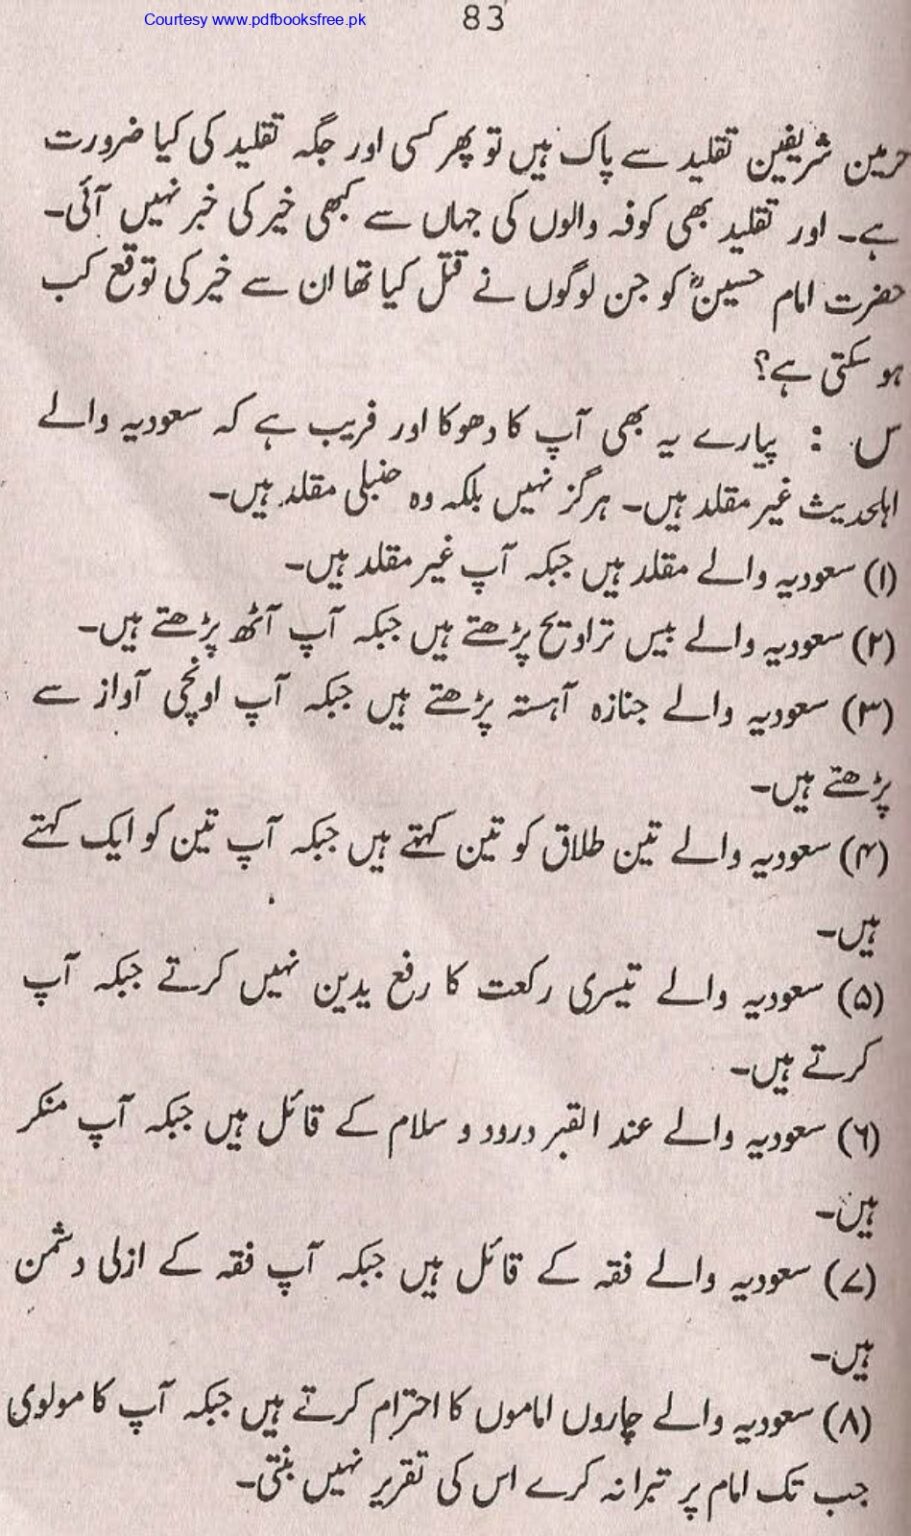 Courtesy www.pdfbooksfree.pk
83
حرمین شریفین تقلید سے پاک ہیں تو پھر کسی اور جگہ تقلید کی کیا ضرورت
ہے۔ اور تقلید بھی کوفہ والوں کی جہاں سے کبھی خیر کی خبر نہیں آئی۔
حضرت امام حسینؓ کو جن لوگوں نے قتل کیا تھا ان سے خیر کی توقع کب
ہو سکتی ہے؟
س : پیارے یہ بھی آپ کا دھوکا اور فریب ہے کہ سعودیہ والے
اہلحدیث غیر مقلد ہیں۔ ہرگز نہیں بلکہ وہ حنبلی مقلد ہیں۔
(۱) سعودیہ والے مقلد ہیں جبکہ آپ غیر مقلد ہیں۔
(۲) سعودیہ والے بیس تراویح پڑھتے ہیں جبکہ آپ آٹھ پڑھتے ہیں۔
(۳) سعودیہ والے جنازہ آہستہ پڑھتے ہیں جبکہ آپ اونچی آواز سے
پڑھتے ہیں۔
(۴) سعودیہ والے تین طلاق کو تین کہتے ہیں جبکہ آپ تین کو ایک کہتے
ہیں۔
(۵) سعودیہ والے تیسری رکعت کا رفع یدین نہیں کرتے جبکہ آپ
کرتے ہیں۔
(۶) سعودیہ والے عند القبر درود و سلام کے قائل ہیں جبکہ آپ منکر
ہیں۔
(۷) سعودیہ والے فقہ کے قائل ہیں جبکہ آپ فقہ کے ازلی دشمن
ہیں۔
(۸) سعودیہ والے چاروں اماموں کا احترام کرتے ہیں جبکہ آپ کا مولوی
جب تک امام پر تبرا نہ کرے اس کی تقریر نہیں بنتی۔